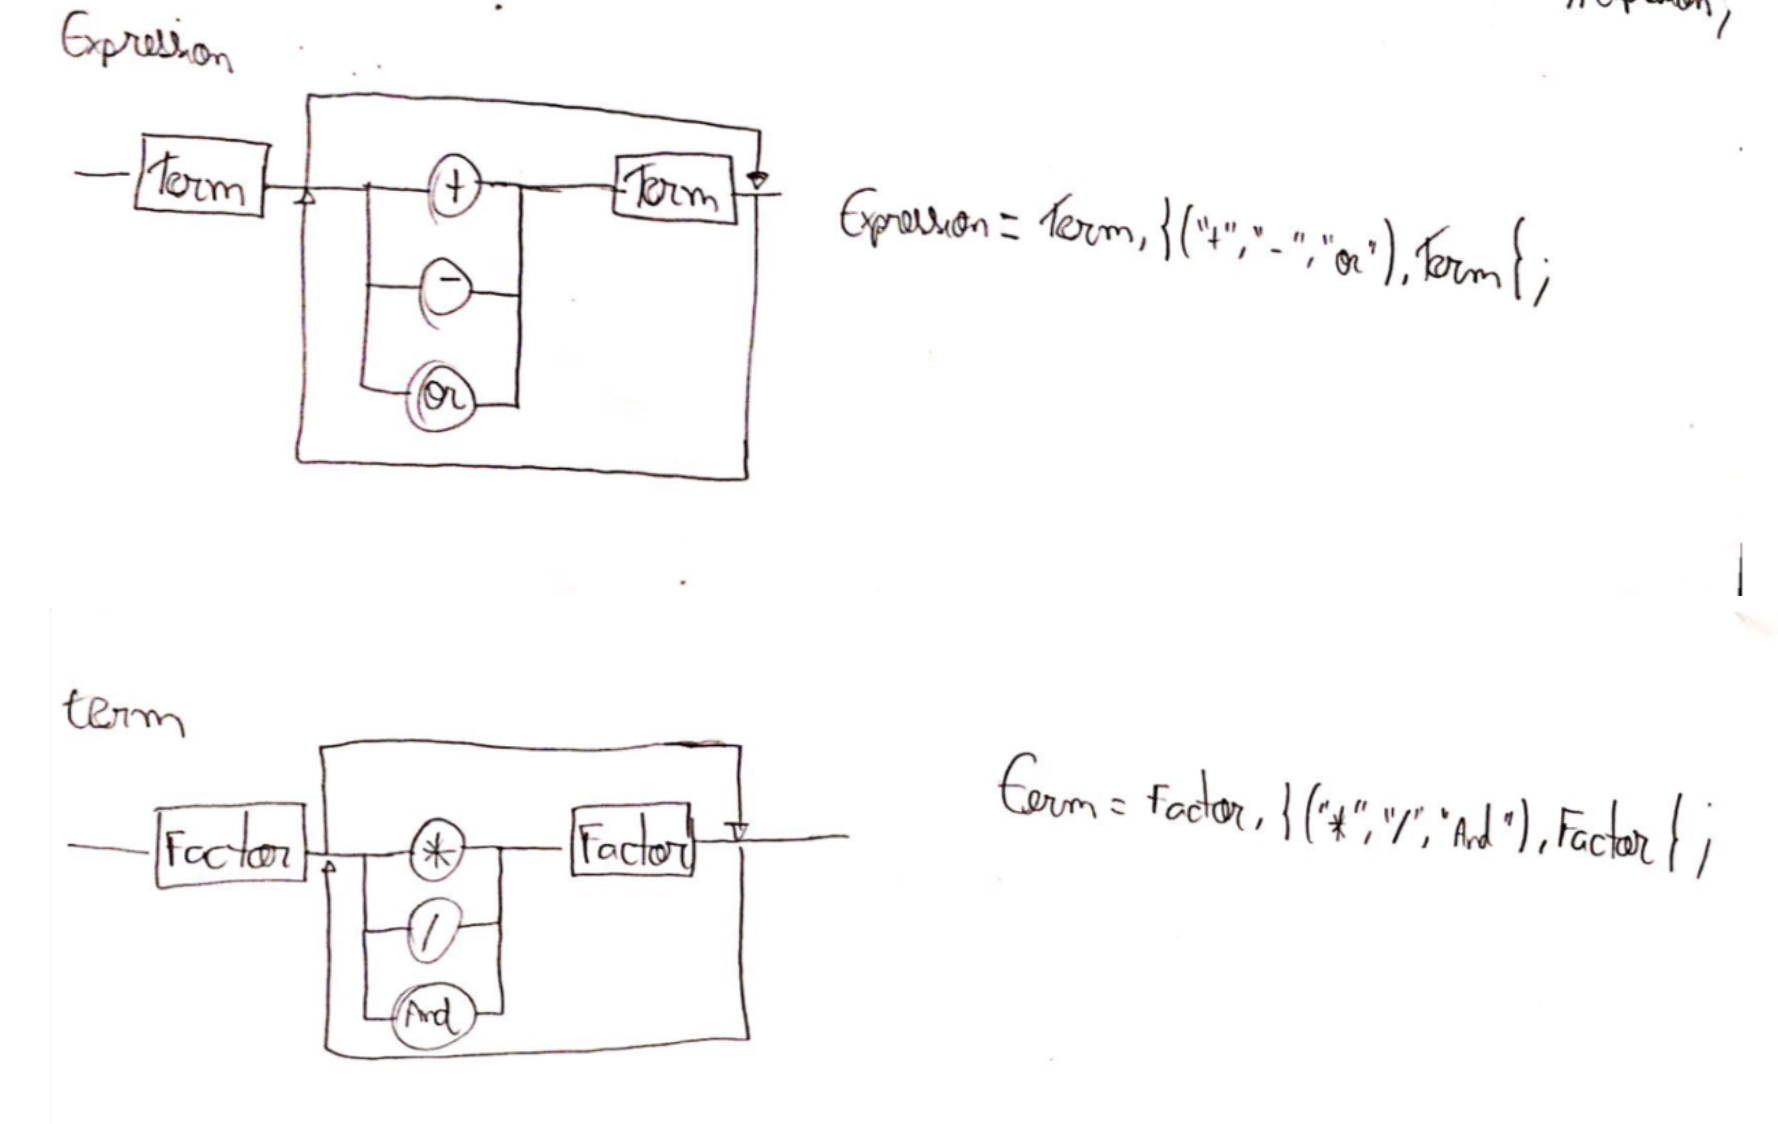 Expression
Term + Term
-
or
Expression = Term, {("+","-","or"), Term};
term
Factor * Factor
/
And
term = Factor, {("*","/","And"), Factor};